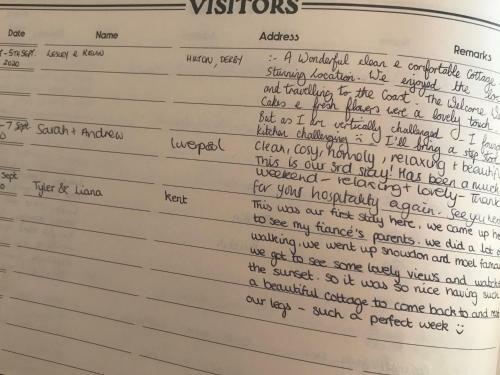 VISITORS
Date Name Address Remarks
-5TH SEPT. LESLEY & KEVIN HILTON, DERBY :- A Wonderful clean & comfortable Cottage
2020 stunning Location. We enjoyed the
and travelling to the Coast. The Welcome
Cakes & fresh flowers were a lovely touch
But as I am vertically challenged, I found
kitchen challenging I'll bring a step
-7 Sept. Sarah + Andrew Liverpool Clean, cosy, homely, relaxing + beautiful
This is our 3rd stay! Has been a much
weekend - relaxing + lovely - Thank
for your hospitality again. See you
Sept Tyler & Liana Kent This was our first stay here, we came up
to see my fiancé's parents. we did a lot
walking, we went up snowdon and moel
we got to see some lovely views and
the sunset. so it was so nice having such
a beautiful cottage to come back to and
our legs - such a perfect week